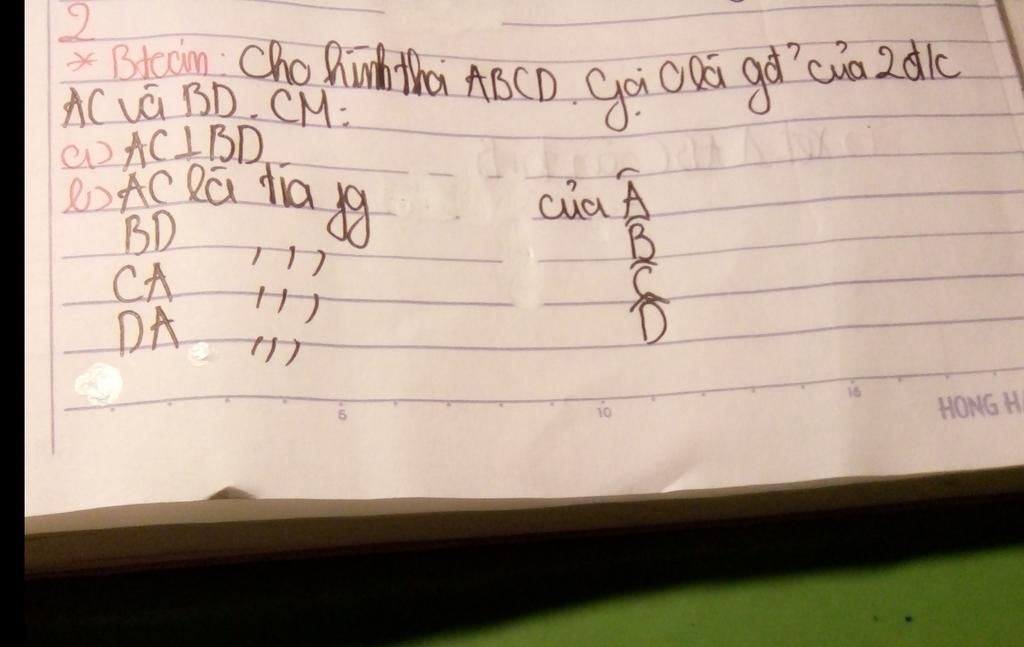 2
* Btecm: Cho hình thoi ABCD. Gọi O là gđ² của 2 đ/c
AC và BD. CM:
a) AC⊥BD
b) AC là tia pg của Â
BD ,,, B̂
CA ,,, Ĉ
DA ,,, D̂
5 10 15
HONG HA